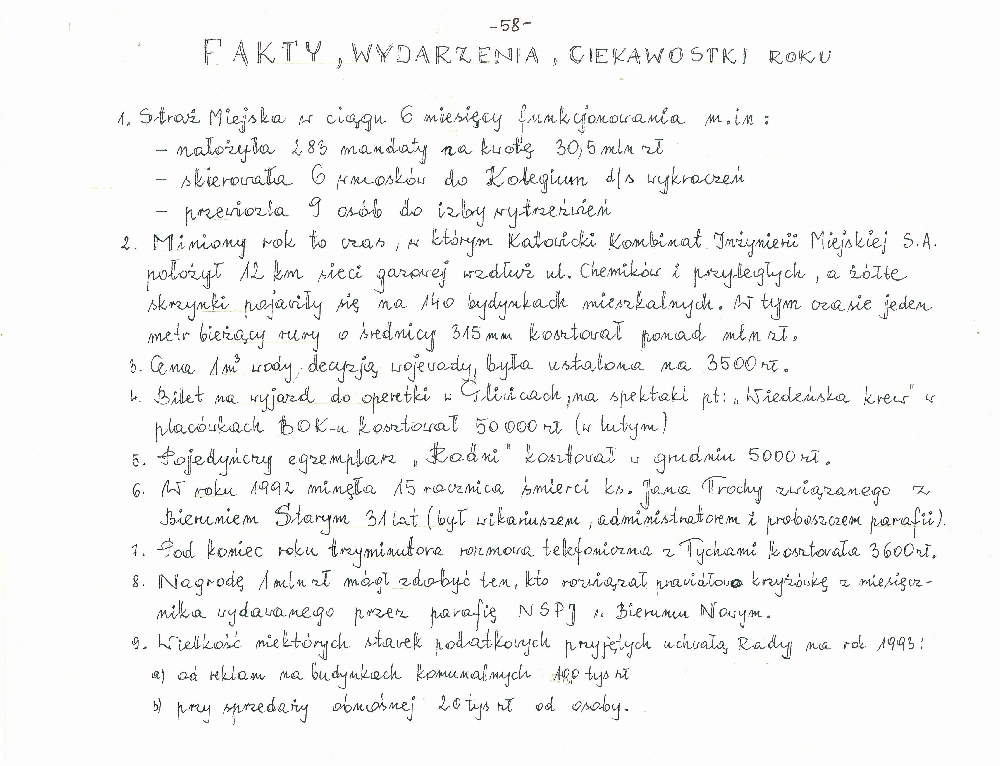 -58-
FAKTY, WYDARZENIA, CIEKAWOSTKI ROKU
1. Straż Miejska w ciągu 6 miesięcy funkcjonowania m.in:
- nałożyła 283 mandaty na kwotę 30,5 mln zł
- skierowała 6 wniosków do Kolegium d/s wykroczeń
- przewiozła 9 osób do izby wytrzeźwień
2. Miniony rok to czas, w którym Katowicki Kombinat Inżynierii Miejskiej S.A.
położył 12 km sieci gazowej wzdłuż ul. Chemików i przyległych, a żółte
skrzynki pojawiły się na 140 budynkach mieszkalnych. W tym czasie jeden
metr bieżący rury o średnicy 315 mm kosztował ponad mln zł.
3. Cena 1m³ wody, decyzją wojewody, była ustalona na 3500 zł.
4. Bilet na wyjazd do operetki w Gliwicach, na spektakl pt: „Wiedeńska krew" w
placówkach BOK-u kosztował 50 000 zł (w lutym)
5. Pojedyńczy egzemplarz „Rodni" kosztował w grudniu 5000 zł.
6. W roku 1992 minęła 15 rocznica śmierci ks. Jana Trochy związanego z
Bieruniem Starym 31 lat (był wikariuszem, administratorem i proboszczem parafii).
7. Pod koniec roku trzyminutowa rozmowa telefoniczna z Tychami kosztowała 3600 zł.
8. Nagrodę 1 mln zł mógł zdobyć ten, kto rozwiązał prawidłowo krzyżówkę z miesięcz-
nika wydawanego przez parafię NSPJ w Bieruniu Nowym.
9. Wielkość niektórych stawek podatkowych przyjętych uchwałą Rady na rok 1993:
a) od reklam na budynkach komunalnych 100 tys zł
b) przy sprzedaży obnośnej 20 tys zł od osoby.